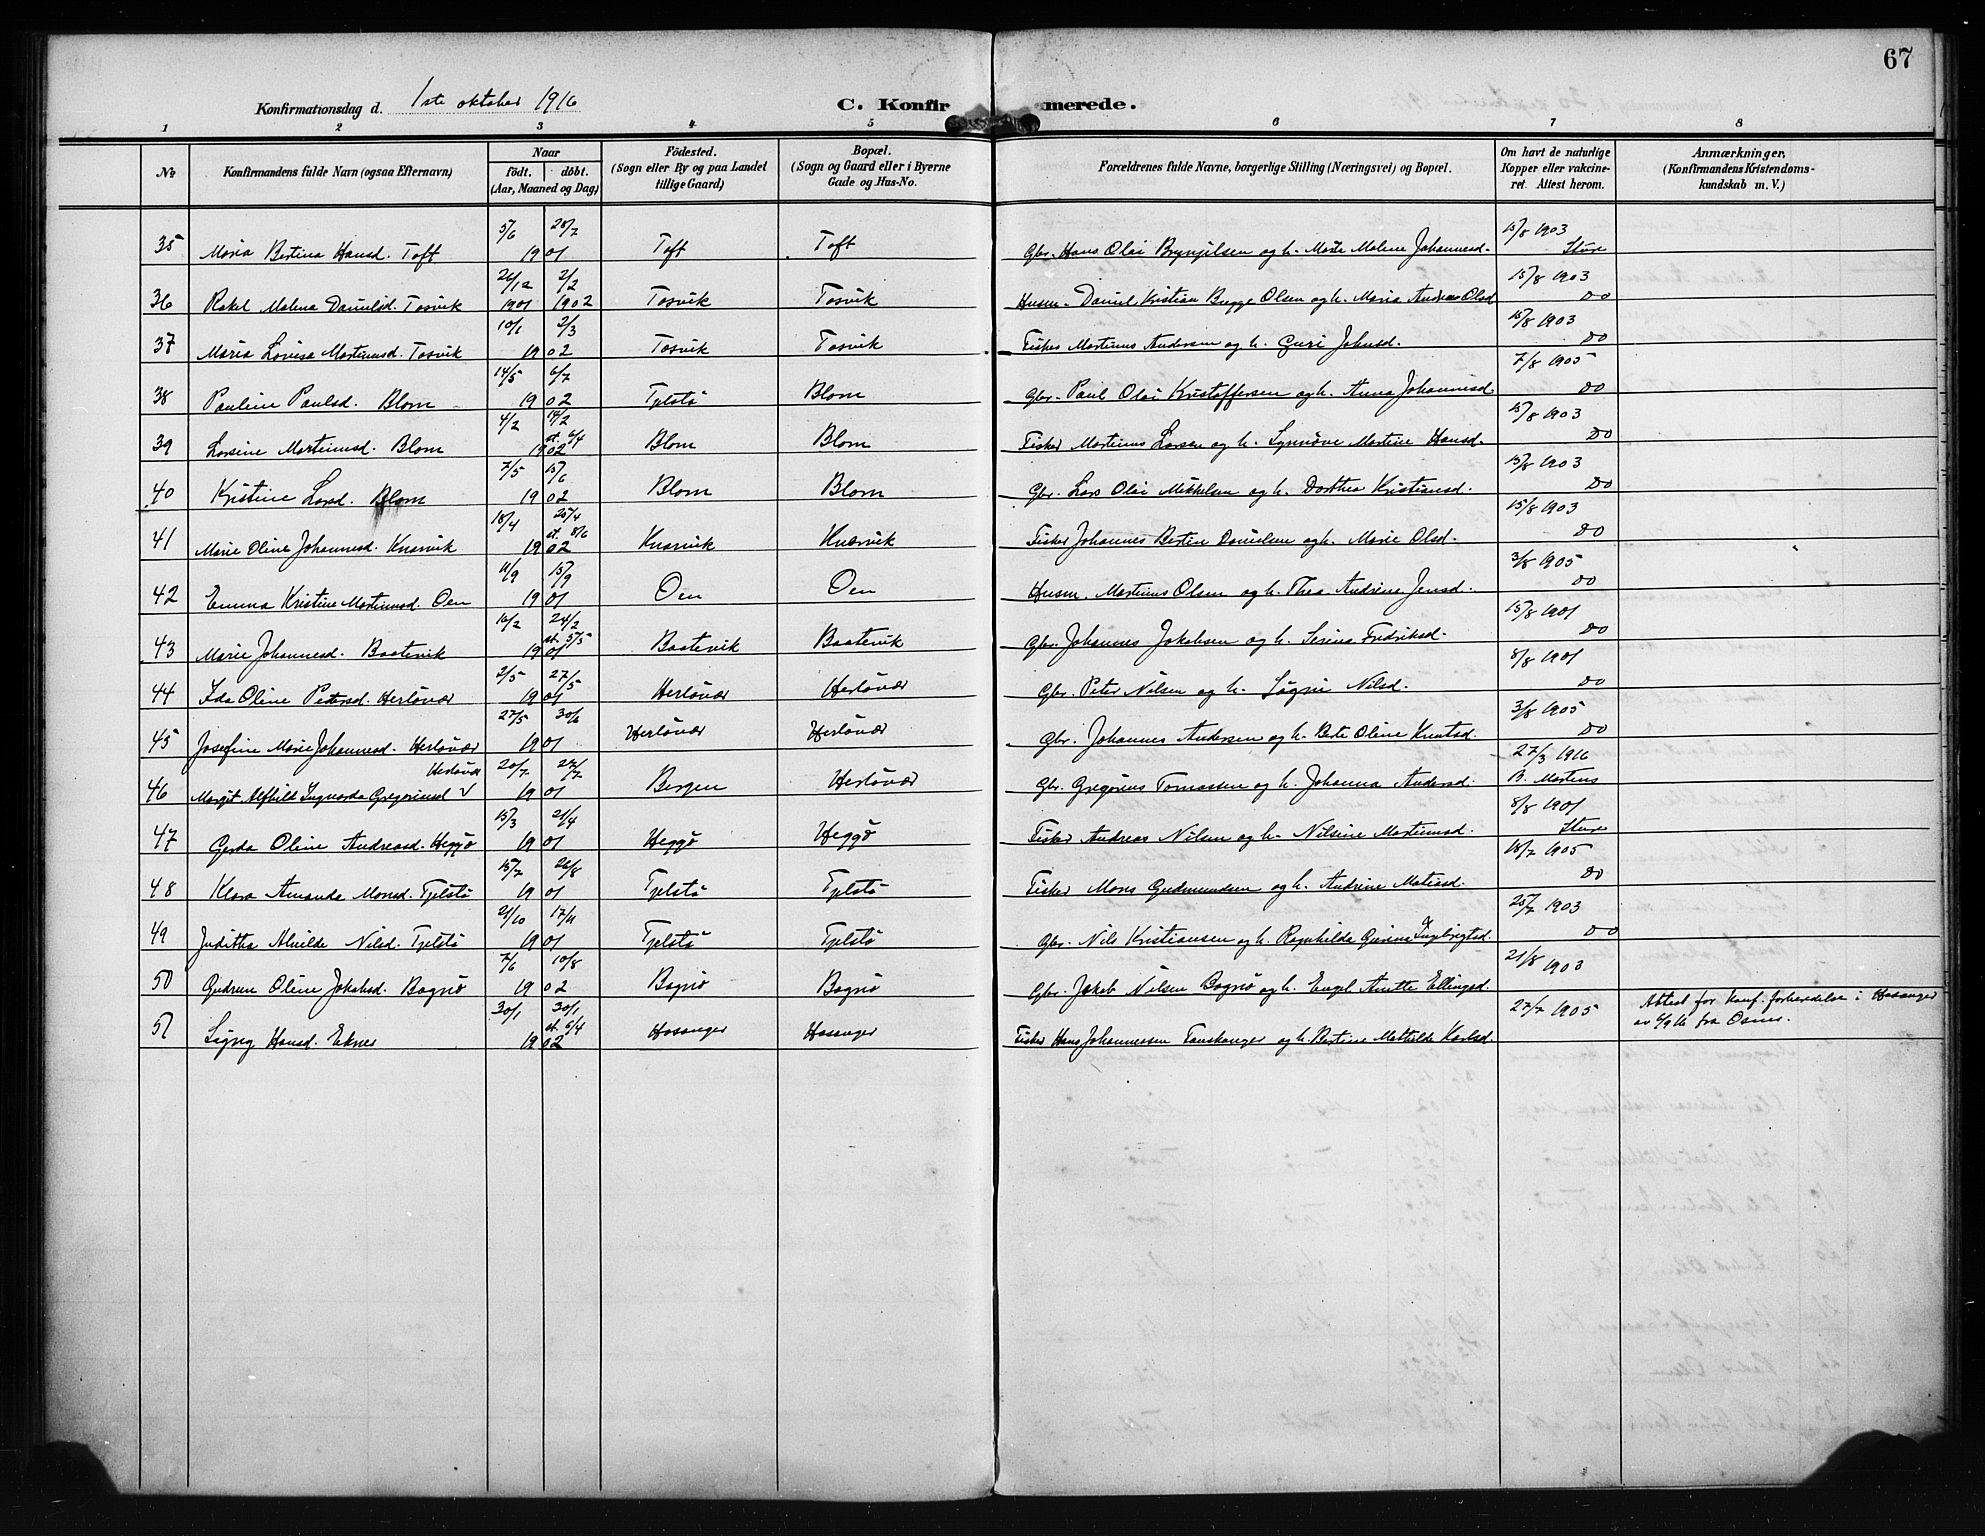 67
Konfirmationsdag d. 1ste oktober 1916
C. Konfirmerede.
1 2 3 4 5 6 7 8
№ Konfirmandens fulde Navn (ogsaa Efternavn) Naar födt. döbt. (Aar, Maaned og Dag) Födested. (Sogn eller By og paa Landet tillige Gaard) Bopæl. (Sogn og Gaard eller i Byerne Gade og Hus-No. Forældrenes fulde Navne, borgerlige Stilling (Næringsvei) og Bopæl. Om havt de naturlige Kopper eller vakcineret. Attest herom. Anmærkninger, (Konfirmandens Kristendomskundskab m. V.)
35 Maria Bertina Hansd. Toft 5/6 1901 Toft Toft Gbr. Hans Olai Brynjelsen og h. Malene Johannesd. 15/8 1903 Sture
36 Rakel Malena Danielsd. Tosvik 26/12 1901 2/2 1902 Tosvik Tosvik Husm. Daniel Kristian Bugge Olsen og h. Maria Andrea Olsd 15/8 1903 Do
37 Maria Lovisa Martinusd. Tosvik 10/1 2/3 1902 Tosvik Tosvik Fisker Martinus Andersen og h. Guri Johnsd. 15/8 1903 Do
38 Pauline Paulsd. Blom 14/5 6/7 1902 Tjelstö Blom Gbr. Paul Olai Kristoffersen og h. Anna Johannesd. 7/8 1905 Do
39 Larsine Martinusd. Blom 4/2 14/2 st. 6/4 1902 Blom Blom Fisker Martinus Larsen og h. Synnöve Martine Hansd. 15/8 1903 Do
40 Kristine Larsd. Blom 7/5 15/6 1902 Blom Blom Gbr. Lars Olai Mikkelsen og h. Dorthea Kristiansd. 15/8 1903 Do
41 Marie Oline Johannesd. Knarvik 18/4 25/4 st. 8/6 1902 Knarvik Knarvik Fisker Johannes Bertin Danielsen og h. Marie Olsd. 15/8 1903 Do
42 Emma Kristine Martinusd. Oen 11/9 15/9 1901 Oen Oen Husm. Martinus Olsen og h. Thea Andrine Jensd. 3/8 1905 Do
43 Marie Johannesd. Baatevik 16/2 24/2 st. 5/5 1901 Baatevik Baatevik Gbr. Johannes Jakobsen og h. Serina Fredriksd. 15/8 1901 Do
44 Ida Oline Petersd. Herlövær 2/5 27/5 1901 Herlövær Herlövær Gbr. Peter Nilsen og h. Nilsd. 8/8 1901 Do
45 Josefine Marie Johannesd. Herlövær 27/5 30/6 1901 Herlövær Herlövær Gbr. Johannes Andersen og h. Berte Oline Knutsd. 3/8 1905 Do
46 Margit Alfhild Ingvarda Gregoriusd Herlövær 20/7 1901 Bergen Herlövær Gbr. Gregorius Tomassen og h. Johanna Andersd. 27/3 1916 B. Martens
47 Gerda Oline Andreasd. Heggö 15/3 21/4 1901 Heggö Heggö Fisker Andreas Nilsen og h. Nilsine Martinusd. 8/8 1901 Sture
48 Klara Amanda Monsd. Tjelstö 15/7 26/8 1901 Tjelstö Tjelstö Fisker Mons Gudmundsen og h. Andrine Matiasd. 18/7 1905 Do
49 Juditha Alvilde Nilsd. Tjelstö 21/10 17/11 1901 Tjelstö Tjelstö Gbr. Nils Kristiansen og h. Ragnhilda Gurine Ingebrigtsd. 25/7 1903 Do
50 Gudrun Oline Jakobsd. Bognö 7/6 10/8 1902 Bognö Bognö Gbr. Jakob Nilsen Bognö og h. Engel Anette Ellingsd. 21/8 1903
51 Hansd. Eknes 30/1 30/1 st. 6/4 1902 Hosanger Hosanger Fisker Hans Johannessen Tanskanger og h. Bertine Mathilde Karlsd. 27/7 1905 Attest for konf. forberedelse i Hosanger
av fra Osnes.